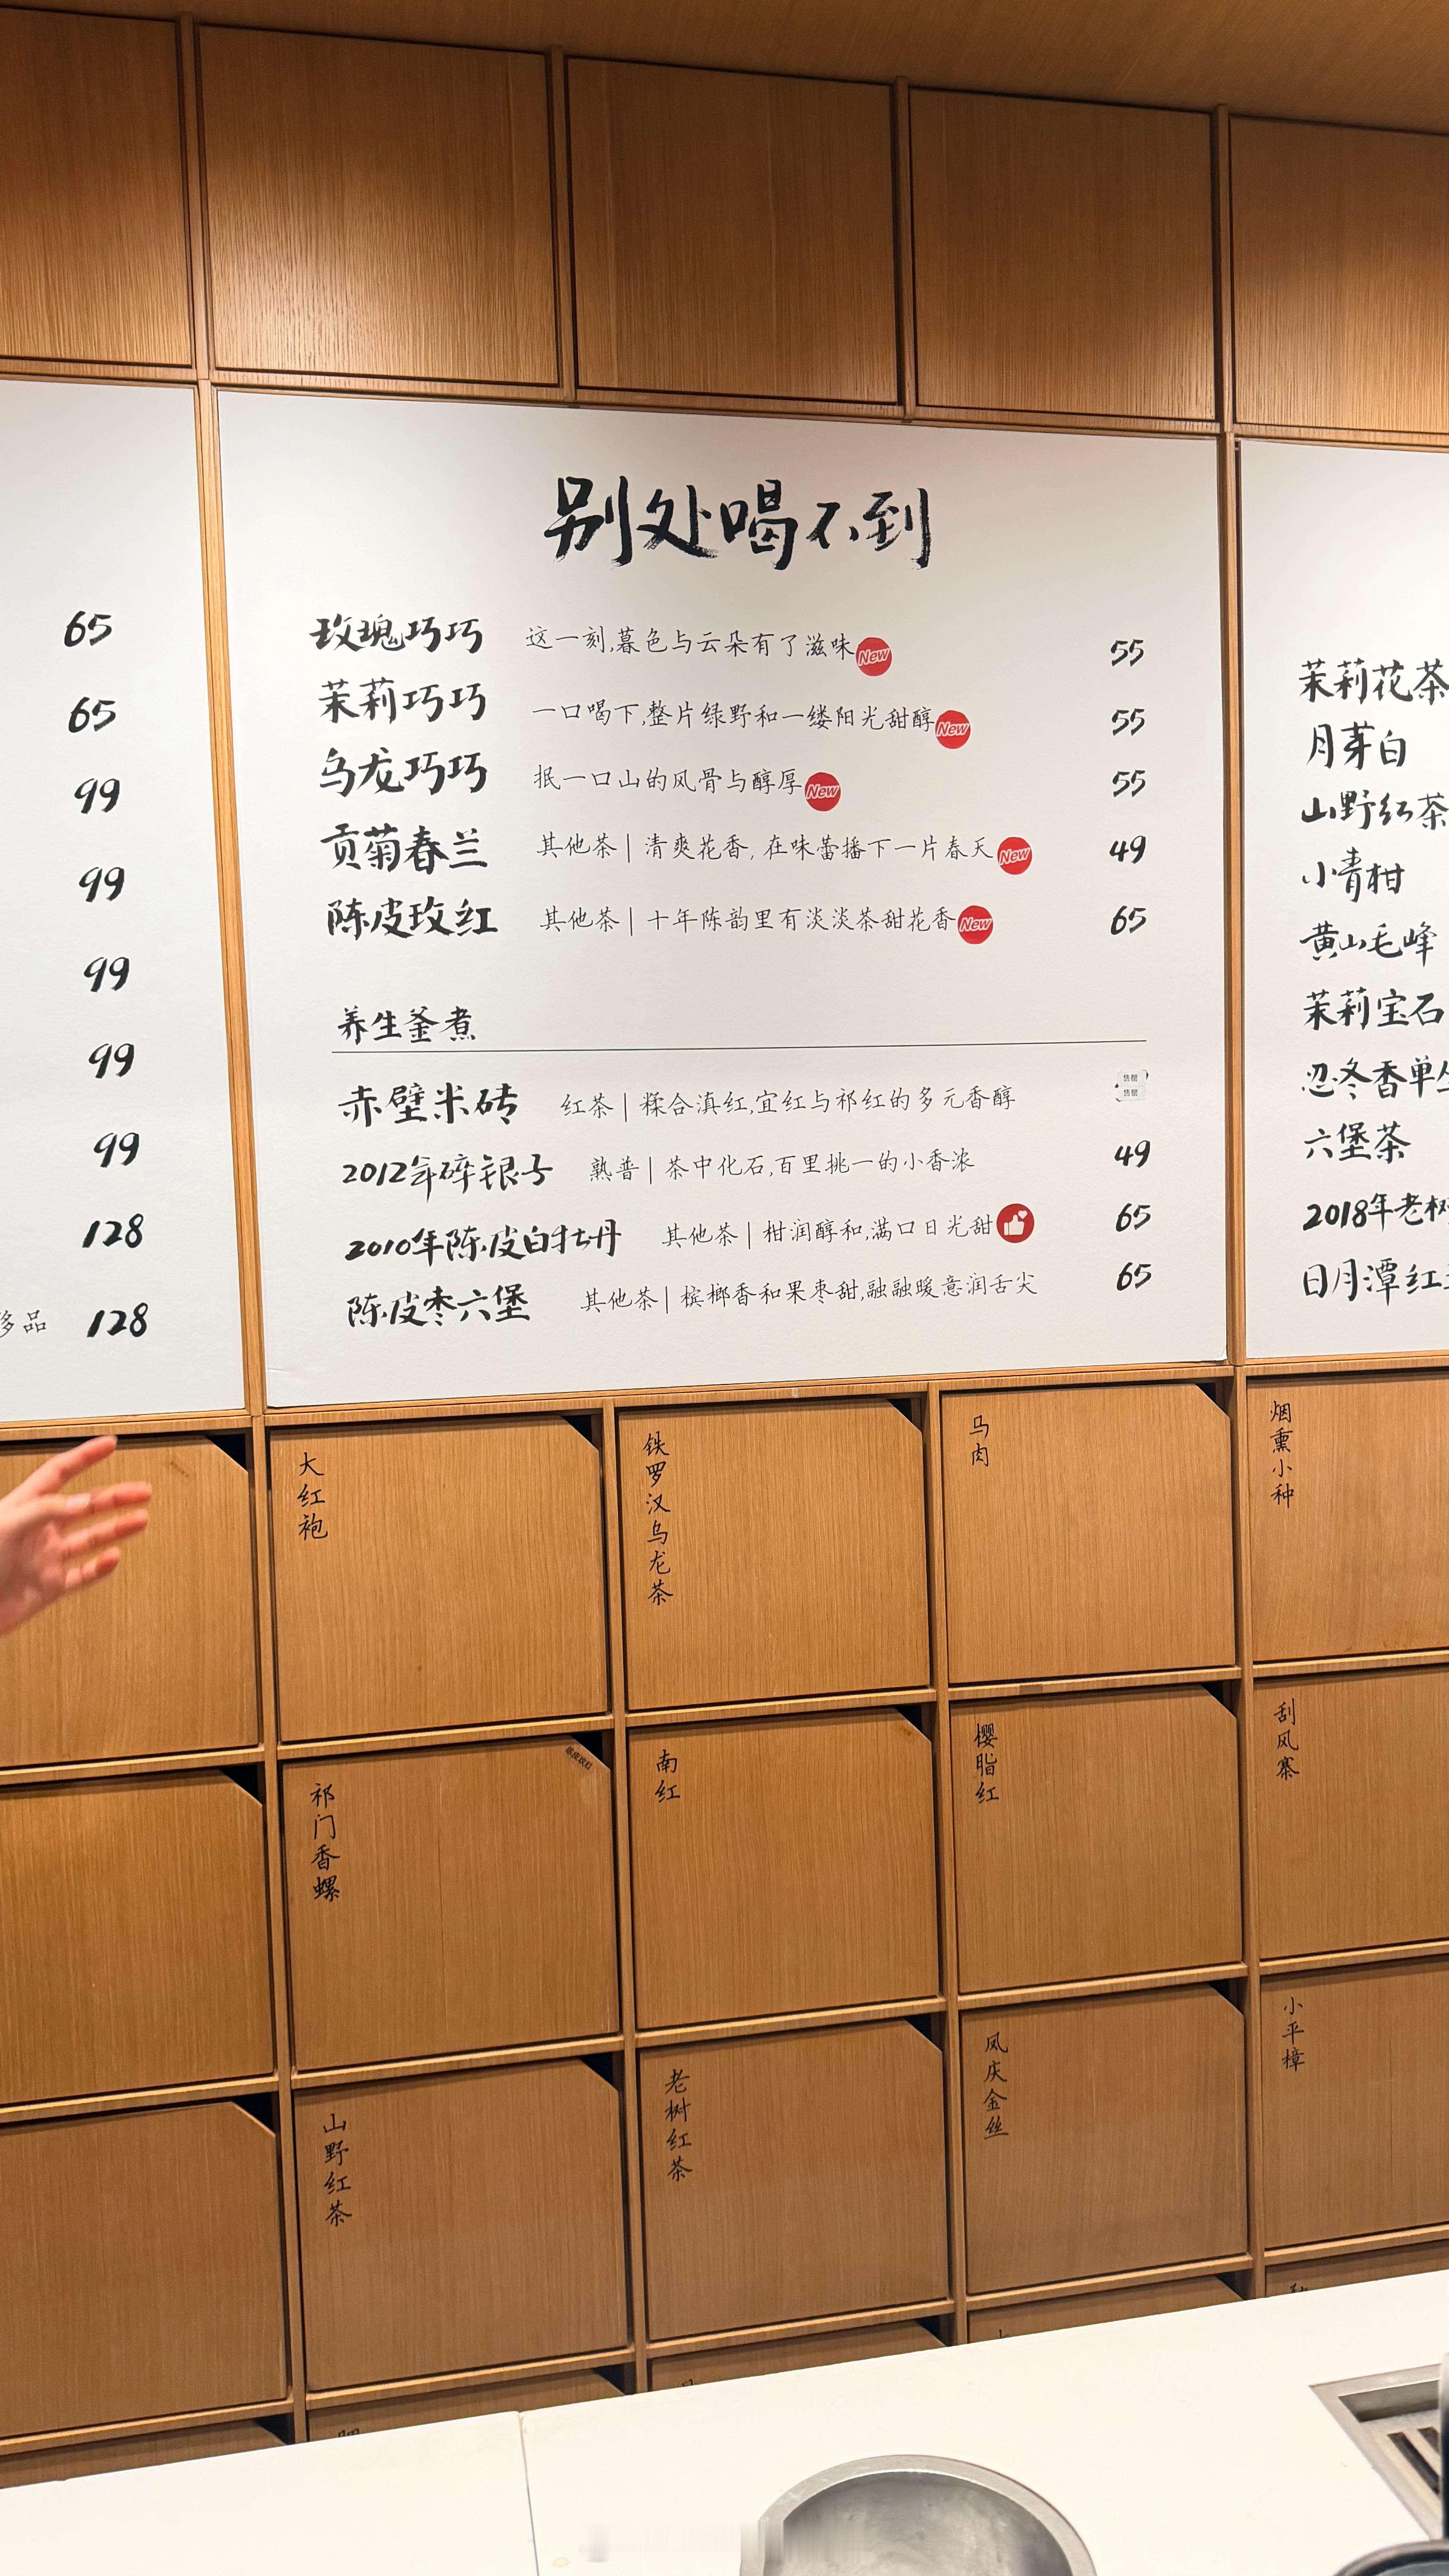 65
65
99
99
99
99
99
128
品 128
别处喝不到
玫瑰巧巧 这一刻,暮色与云朵有了滋味 New 55
茉莉巧巧 一口喝下,整片绿野和一缕阳光甜醇 New 55
乌龙巧巧 抿一口山的风骨与醇厚 New 55
贡菊春兰 其他茶 | 清爽花香, 在味蕾播下一片春天 New 49
陈皮玫红 其他茶 | 十年陈韵里有淡淡茶甜花香 New 65
养生釜煮
赤壁米砖 红茶 | 糅合滇红,宜红与祁红的多元香醇 售罄 售罄
2012年碎银子 熟普 | 茶中化石,百里挑一的小香浓 49
2010年陈皮白牡丹 其他茶 | 柑润醇和,满口日光甜 65
陈皮枣六堡 其他茶 | 槟榔香和果枣甜,融融暖意润舌尖 65
茉莉花茶
月芽白
山野红茶
小青柑
黄山毛峰
茉莉宝石
忍冬香单
六堡茶
2018年老树
日月潭红
大红袍
铁罗汉乌龙茶
马肉
烟熏小种
祁门香螺
陈皮玫红
南红
樱脂红
刮风寨
山野红茶
老树红茶
凤庆金丝
小平樟